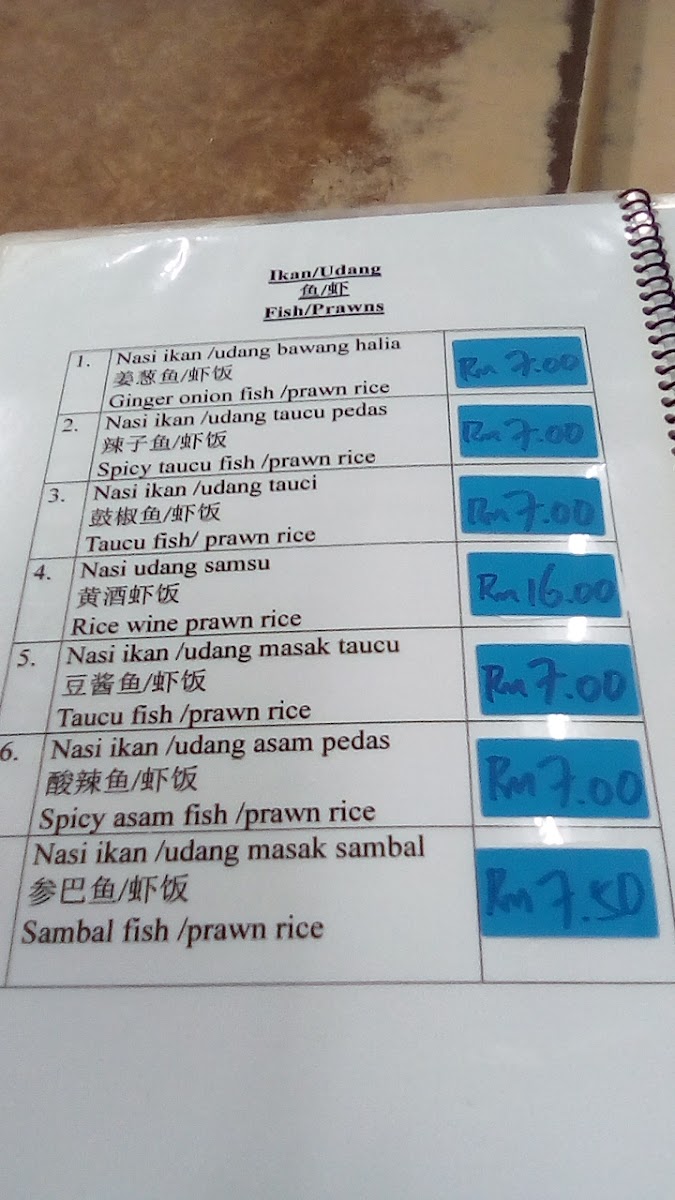 Ikan/Udang
鱼/虾
Fish/Prawns
1. Nasi ikan /udang bawang halia RM 7.00
姜葱鱼/虾饭
Ginger onion fish /prawn rice
2. Nasi ikan /udang taucu pedas RM 7.00
辣子鱼/虾饭
Spicy taucu fish /prawn rice
3. Nasi ikan /udang tauci RM 7.00
鼓椒鱼/虾饭
Taucu fish/ prawn rice
4. Nasi udang samsu RM 16.00
黄酒虾饭
Rice wine prawn rice
5. Nasi ikan /udang masak taucu RM 7.00
豆酱鱼/虾饭
Taucu fish /prawn rice
6. Nasi ikan /udang asam pedas RM 7.00
酸辣鱼/虾饭
Spicy asam fish /prawn rice
Nasi ikan /udang masak sambal RM 7.50
参巴鱼/虾饭
Sambal fish /prawn rice